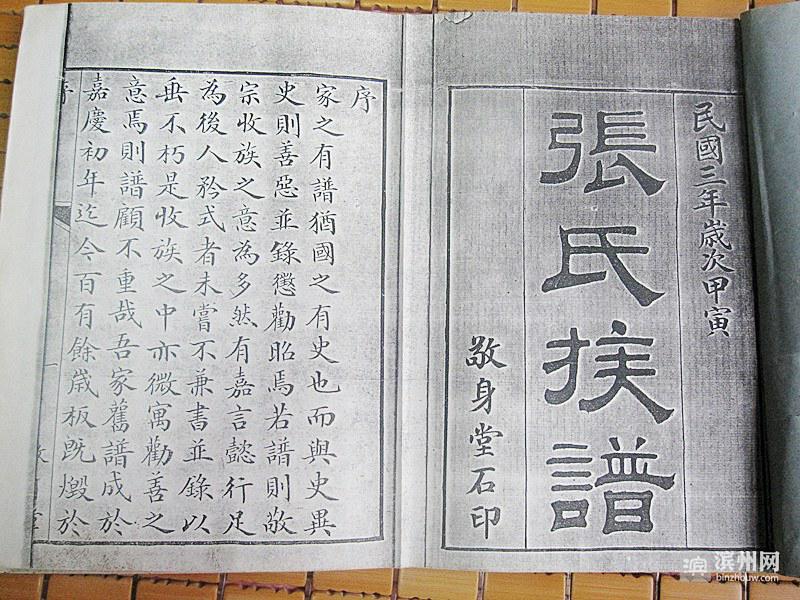 民國三年歲次甲寅
張氏族譜
敬身堂石印
序
家之有譜猶國之有史也而與史異
史則善惡並錄懲勸昭焉若譜則敬
宗收族之意為多然有嘉言懿行足
為後人矜式者未嘗不兼書並錄以
垂不朽是收族之中亦微寓勸善之
意焉則譜顧不重哉吾家舊譜成於
嘉慶初年迄今百有餘歲板既燬於
序
一
滨州网
binzhouw.com